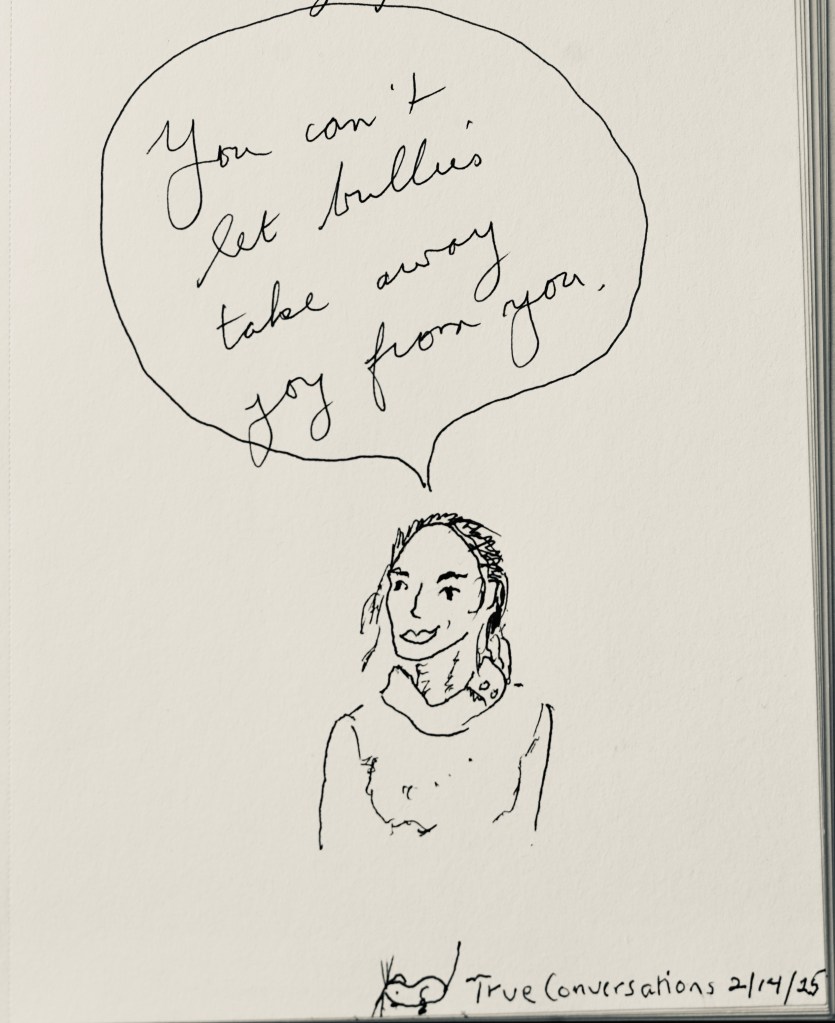 You can't
let bullies
take away
joy from you.
True Conversations 2/14/25